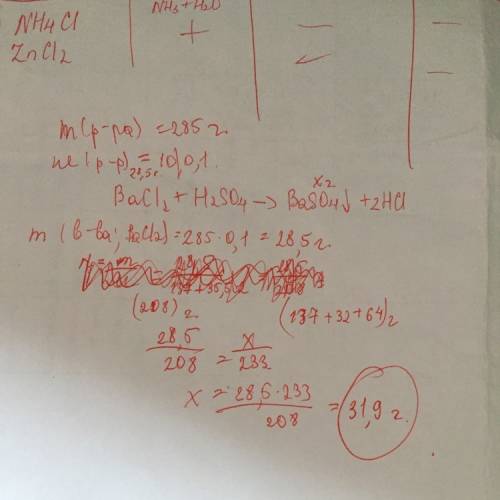 NH4Cl | NH3 + H2O | — | —
ZnCl2 | + | ✓ | —
m(р-ра) = 285 г.
(р-р) = 10/0,1.
28,5г.
x г
BaCl2 + H2SO4 -> BaSO4↓ + 2HCl
m (в-ва; BaCl2) = 285 · 0,1 = 28,5 г.
(208) г (137+32+64) г
28,5/208 = x/233
x = 28,5·233/208 = 31,9 г.